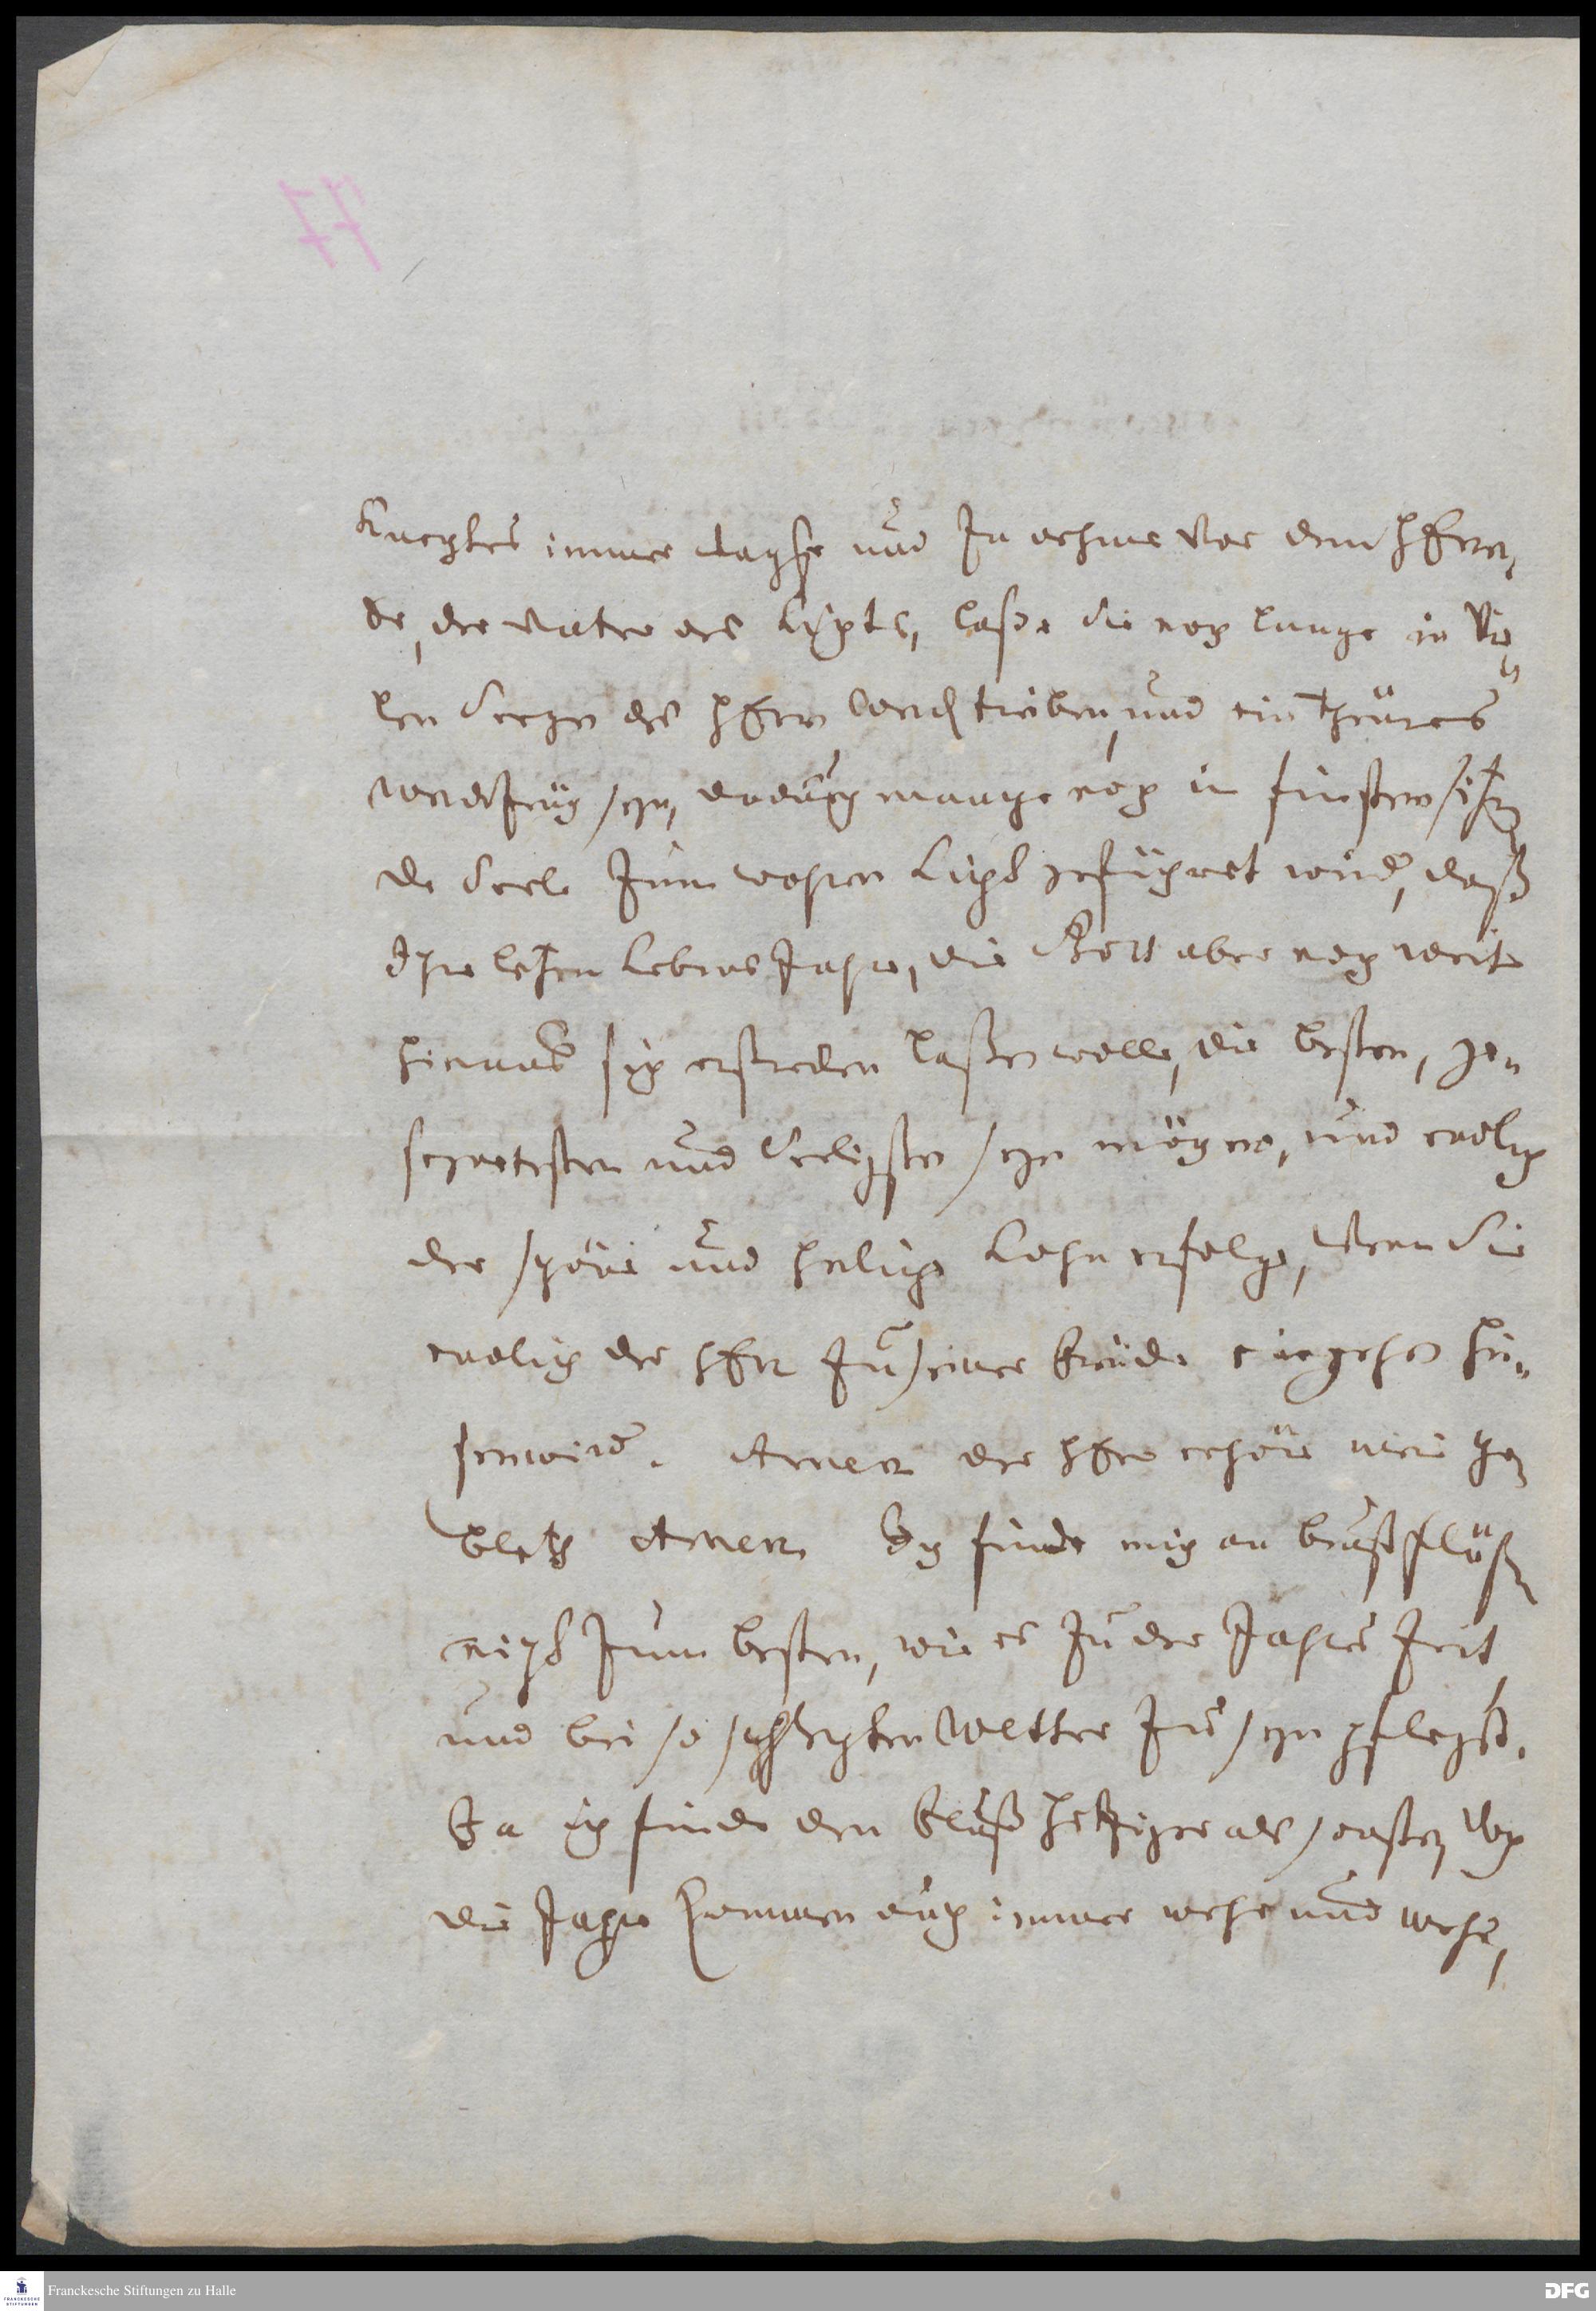 77
Knechtes immer wachse und Zu nehme Vor dem HErrn,
der, der Vater des Lichts, laße Sie noch lange in Vie„
len Seegen des HErrn Werck treiben, und ein Theüres
Werckzeüg seyn, dadurch manche noch in finstern sitzen
de Seele zum wahren Licht geführet wird, daß
Ihre letzen Lebens Jahre, die Gott aber noch weit
hinnaus sich erstrecken laßen wolle, die besten, ge„
segnetesten und Seeligsten seyn mögen, und endlich
der schöne und heilige Lohn erfolge, Wenn Sie
endlich der HErr Zu seiner Freüde eingehen hei„
sen wird. Amen der HErr erhöre mein ge
bleth Amen. Ich finde mich an brustflüßen
nicht zum besten, wie es Zu der Jahres Zeit
und bei so schlechten Wetter Zu seyn pflegt.
Ja ich finde den Fluß hefftiger als sonsten, Weg
die Jahre kommen auch immer mehr und mehr,
Franckesche Stiftungen zu Halle
FRANCKESCHE STIFTUNGEN
DFG